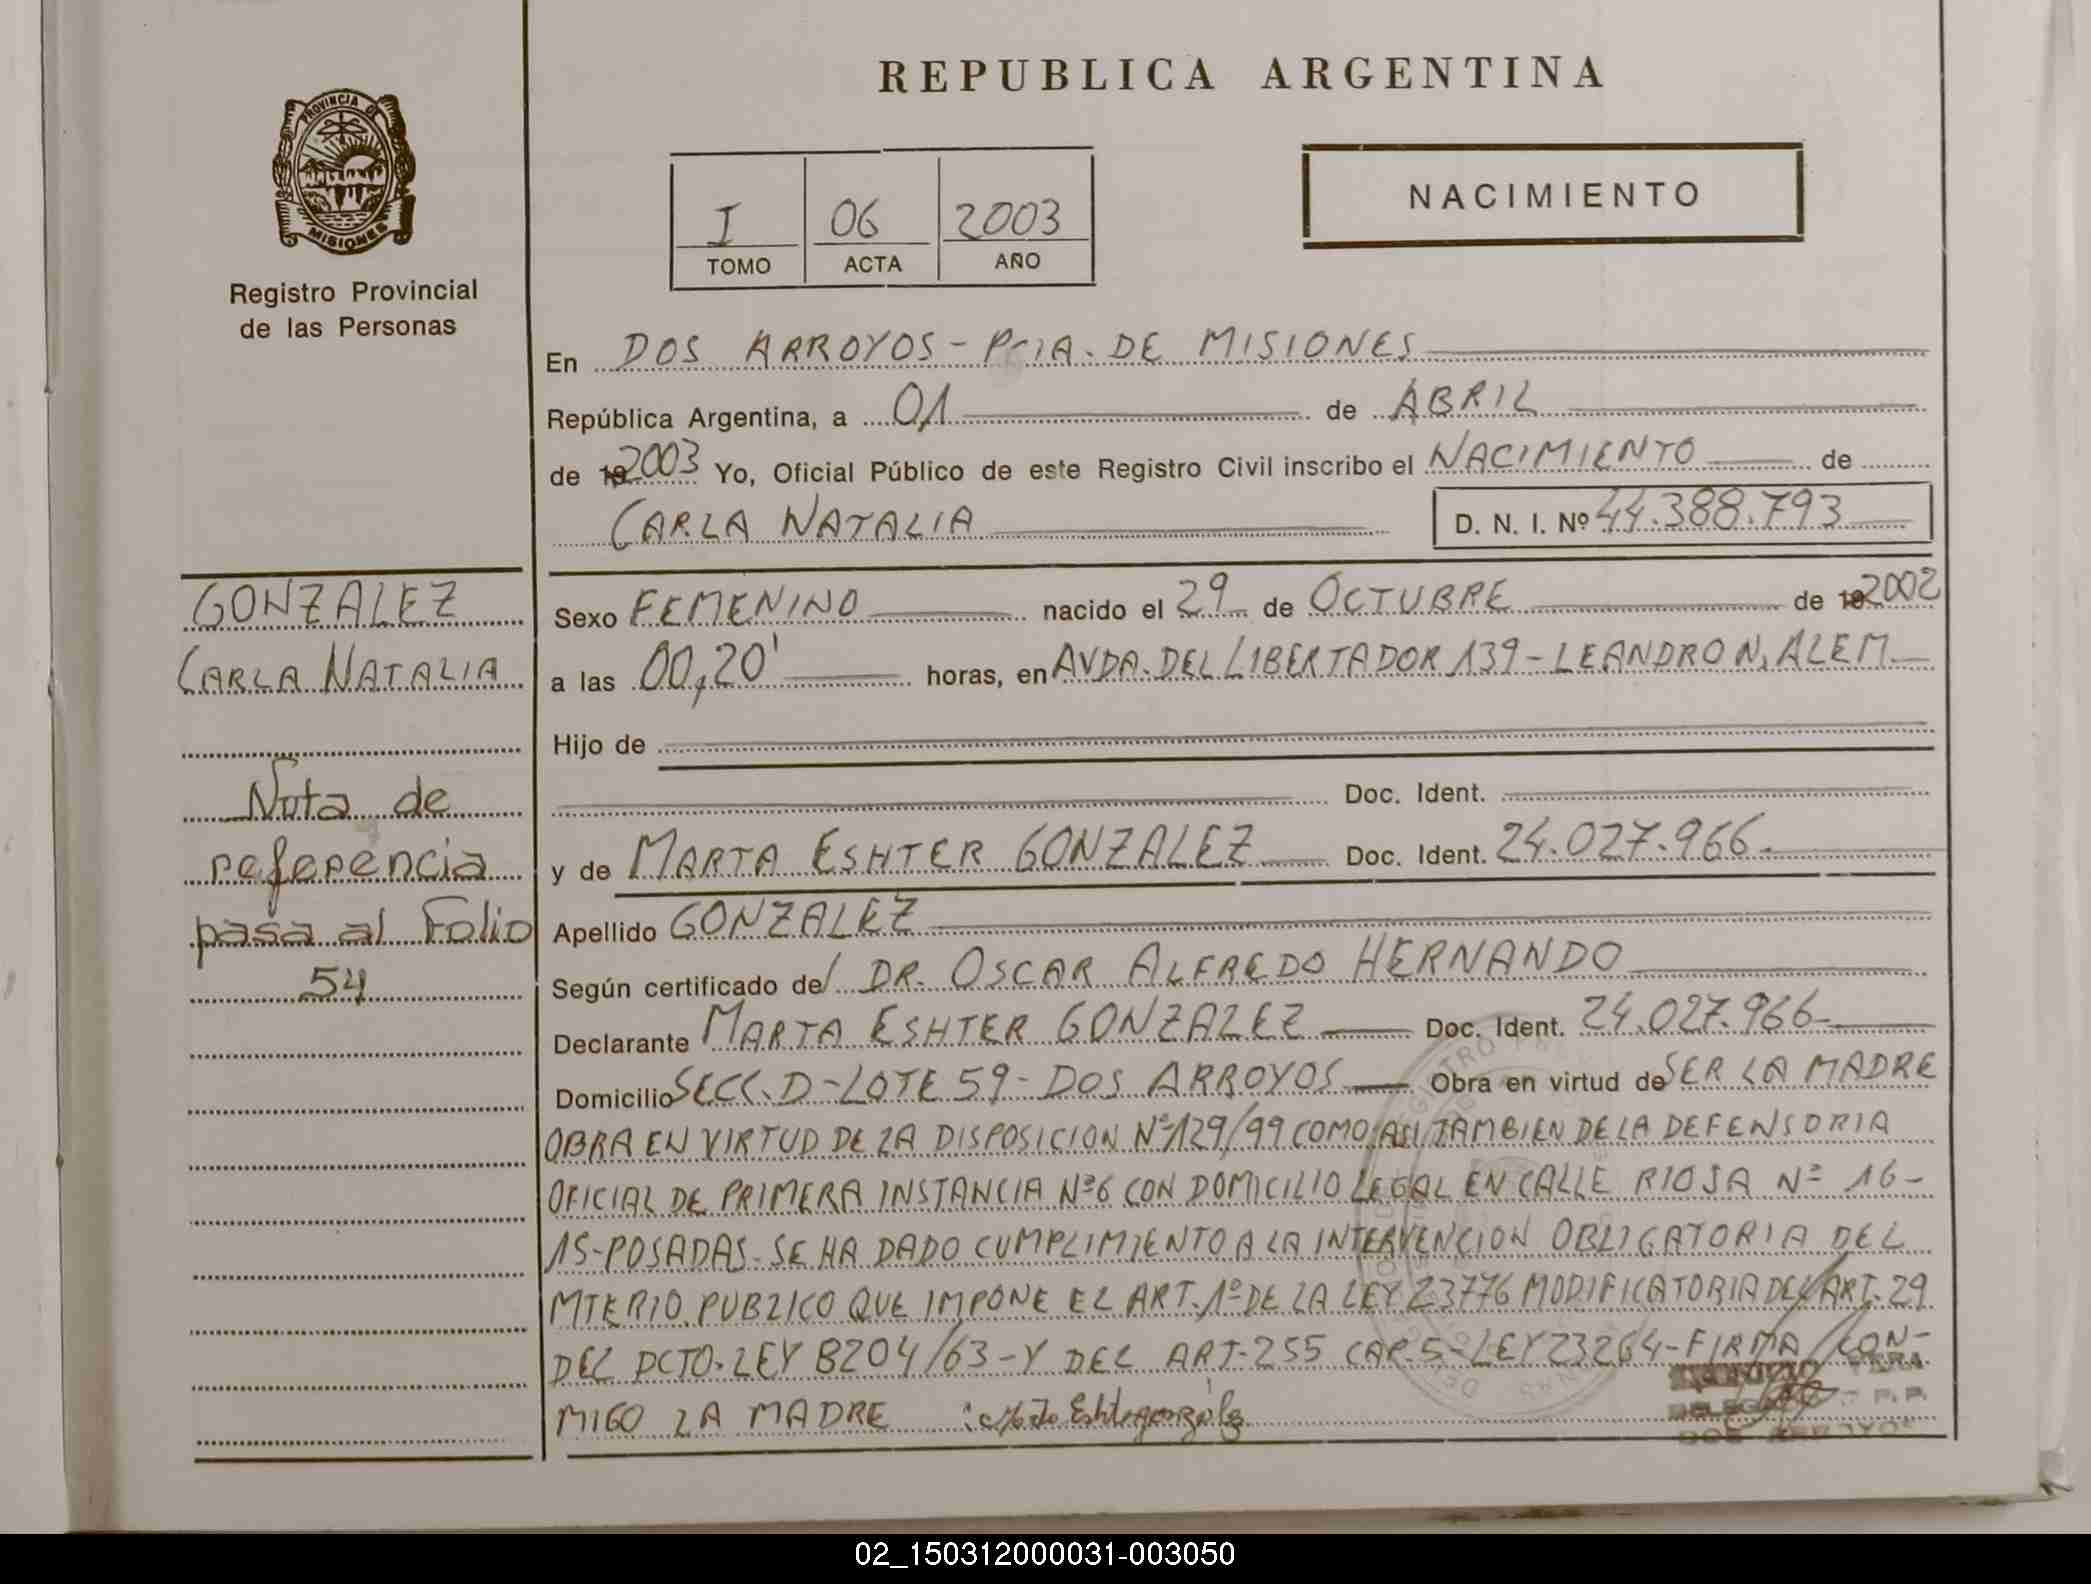 REPUBLICA ARGENTINA
PROVINCIA DE
MISIONES
Registro Provincial
de las Personas
I 06 2003
TOMO ACTA AÑO
NACIMIENTO
En DOS ARROYOS - Pcia. DE MISIONES
República Argentina, a 01 de ABRIL
de 2003 Yo, Oficial Público de este Registro Civil inscribo el NACIMIENTO de
CARLA NATALIA D. N. I. Nº 44.388.793
GONZALEZ
CARLA NATALIA
Nota de
referencia
pasa al Folio
54
Sexo FEMENINO nacido el 29 de OCTUBRE de 2002
a las 00,20' horas, en AVDA. DEL LIBERTADOR 139 - LEANDRO N. ALEM
Hijo de
Doc. Ident.
y de MARTA ESHTER GONZALEZ Doc. Ident. 24.027.966
Apellido GONZALEZ
Según certificado del DR. OSCAR ALFREDO HERNANDO
Declarante MARTA ESHTER GONZALEZ Doc. Ident. 24.027.966
Domicilio SECC. D - LOTE 59 - DOS ARROYOS Obra en virtud de SER LA MADRE
OBRA EN VIRTUD DE LA DISPOSICION Nº 129/99 COMO ASI TAMBIEN DE LA DEFENSORIA
OFICIAL DE PRIMERA INSTANCIA Nº 6 CON DOMICILIO LEGAL EN CALLE RIOJA Nº 16-
15-POSADAS- SE HA DADO CUMPLIMIENTO A LA INTERVENCION OBLIGATORIA DEL
MTERIO PUBLICO QUE IMPONE EL ART. 1º DE LA LEY 23776 MODIFICATORIA DEL ART. 29
DEL DCTO. LEY 8204/63 - Y DEL ART. 255 CAP. 5 - LEY 23264 - FIRMA CON-
MIGO LA MADRE
DOS ARROYOS
02_150312000031-003050